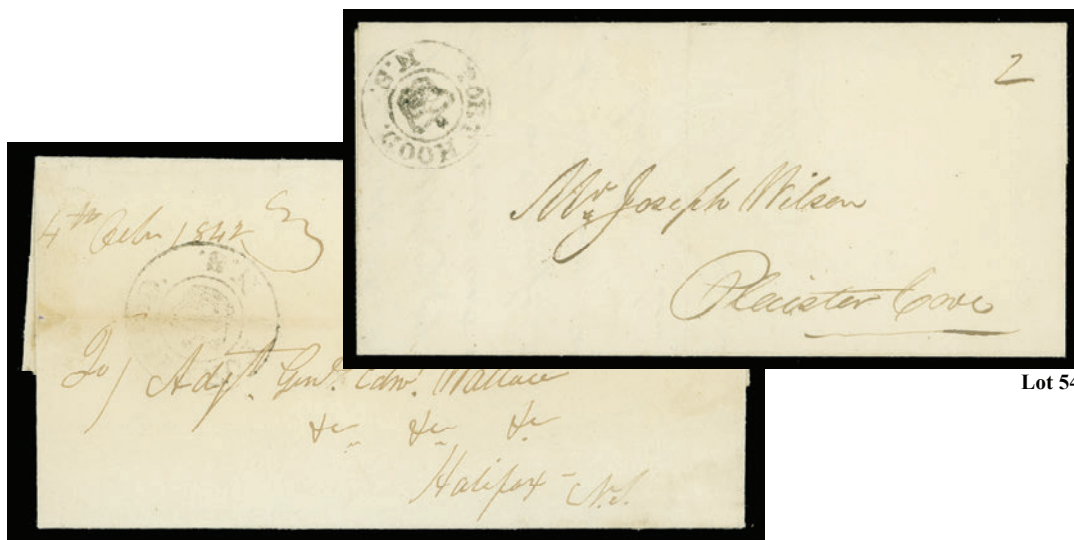 PORT HOOD. N.S.
2
Mr Joseph Wilson
Plaister Cove
4th Octr 1842
N.S.
To / Adjt. Genl. Edwd. Wallace
&c &c &c
Halifax - N.S.
Lot 54